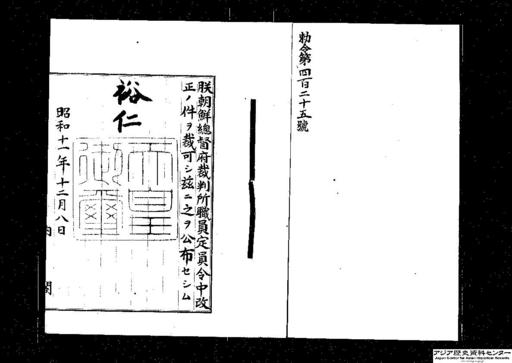 勅令第四百二十五號
朕朝鮮總督府裁判所職員定員令中改
正ノ件ヲ裁可シ茲ニ之ヲ公布セシム
裕仁
天皇
御璽
昭和十一年十二月八日
內閣
アジア歴史資料センター
Japan Center for Asian Historical Records